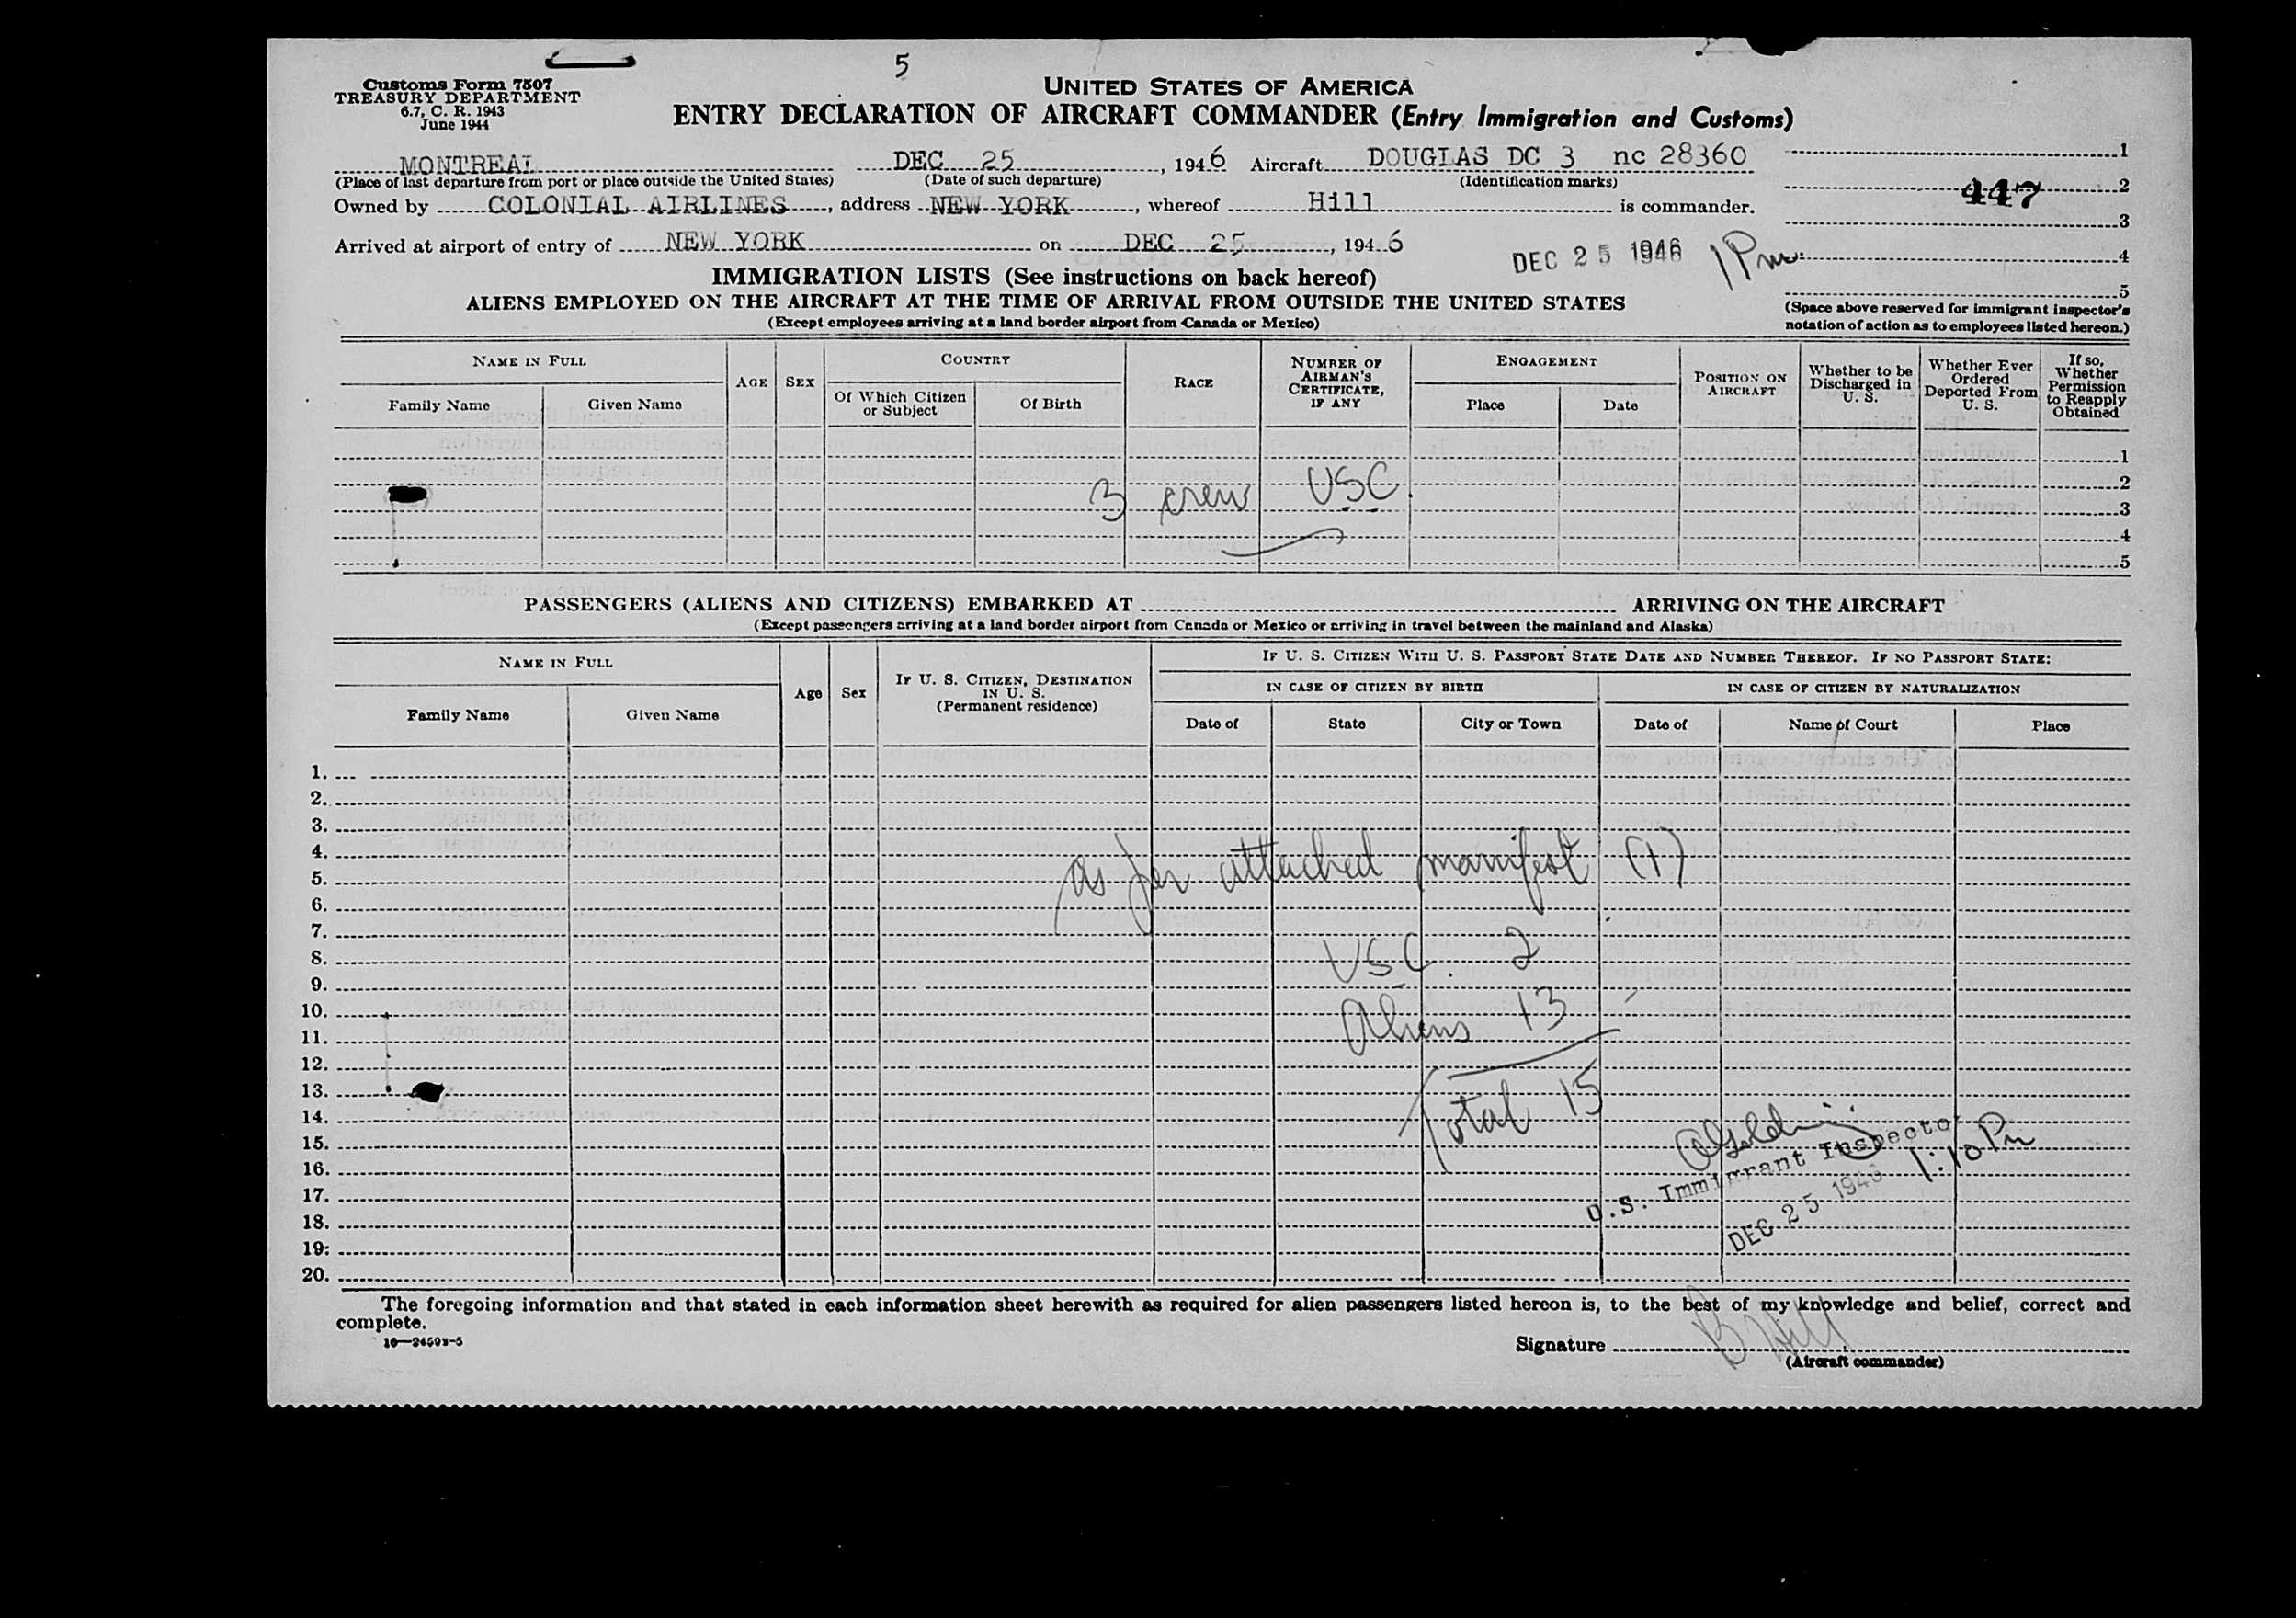 5
Customs Form 7507
TREASURY DEPARTMENT
6.7, C. R. 1943
June 1944
UNITED STATES OF AMERICA
ENTRY DECLARATION OF AIRCRAFT COMMANDER (Entry Immigration and Customs)
MONTREAL DEC 25, 1946 Aircraft DOUGLAS DC 3 nc 28360
(Place of last departure from port or place outside the United States) (Date of such departure) (Identification marks)
Owned by COLONIAL AIRLINES, address NEW YORK, whereof Hill is commander.
Arrived at airport of entry of NEW YORK on DEC 25, 1946
DEC 25 1946 1 Pm
1
447 2
3
4
5
(Space above reserved for immigrant inspector's
notation of action as to employees listed hereon.)
IMMIGRATION LISTS (See instructions on back hereof)
ALIENS EMPLOYED ON THE AIRCRAFT AT THE TIME OF ARRIVAL FROM OUTSIDE THE UNITED STATES
(Except employees arriving at a land border airport from Canada or Mexico)
NAME IN FULL
Family Name Given Name
AGE SEX
COUNTRY
Of Which Citizen or Subject Of Birth
RACE
NUMBER OF AIRMAN'S CERTIFICATE, IF ANY
ENGAGEMENT
Place Date
POSITION ON AIRCRAFT
Whether to be Discharged in U. S.
Whether Ever Ordered Deported From U. S.
If so, Whether Permission to Reapply Obtained
1
2
3 crew USC
3
4
5
PASSENGERS (ALIENS AND CITIZENS) EMBARKED AT ARRIVING ON THE AIRCRAFT
(Except passengers arriving at a land border airport from Canada or Mexico or arriving in travel between the mainland and Alaska)
NAME IN FULL
Family Name Given Name
Age Sex
IF U. S. CITIZEN, DESTINATION IN U. S.
(Permanent residence)
IF U. S. CITIZEN WITH U. S. PASSPORT STATE DATE AND NUMBER THEREOF. IF NO PASSPORT STATE:
IN CASE OF CITIZEN BY BIRTH IN CASE OF CITIZEN BY NATURALIZATION
Date of State City or Town Date of Name of Court Place
1.
2.
3.
4.
as per attached manifest (1)
5.
6.
7.
8. USC. 2
9.
10. Aliens 13
11.
12.
13.
14. Total 15
15.
16.
U.S. Immigrant Inspector 1:10 Pm
17.
DEC 25 1946
18.
19.
20.
The foregoing information and that stated in each information sheet herewith as required for alien passengers listed hereon is, to the best of my knowledge and belief, correct and
complete.
Signature B Hill
(Aircraft commander)